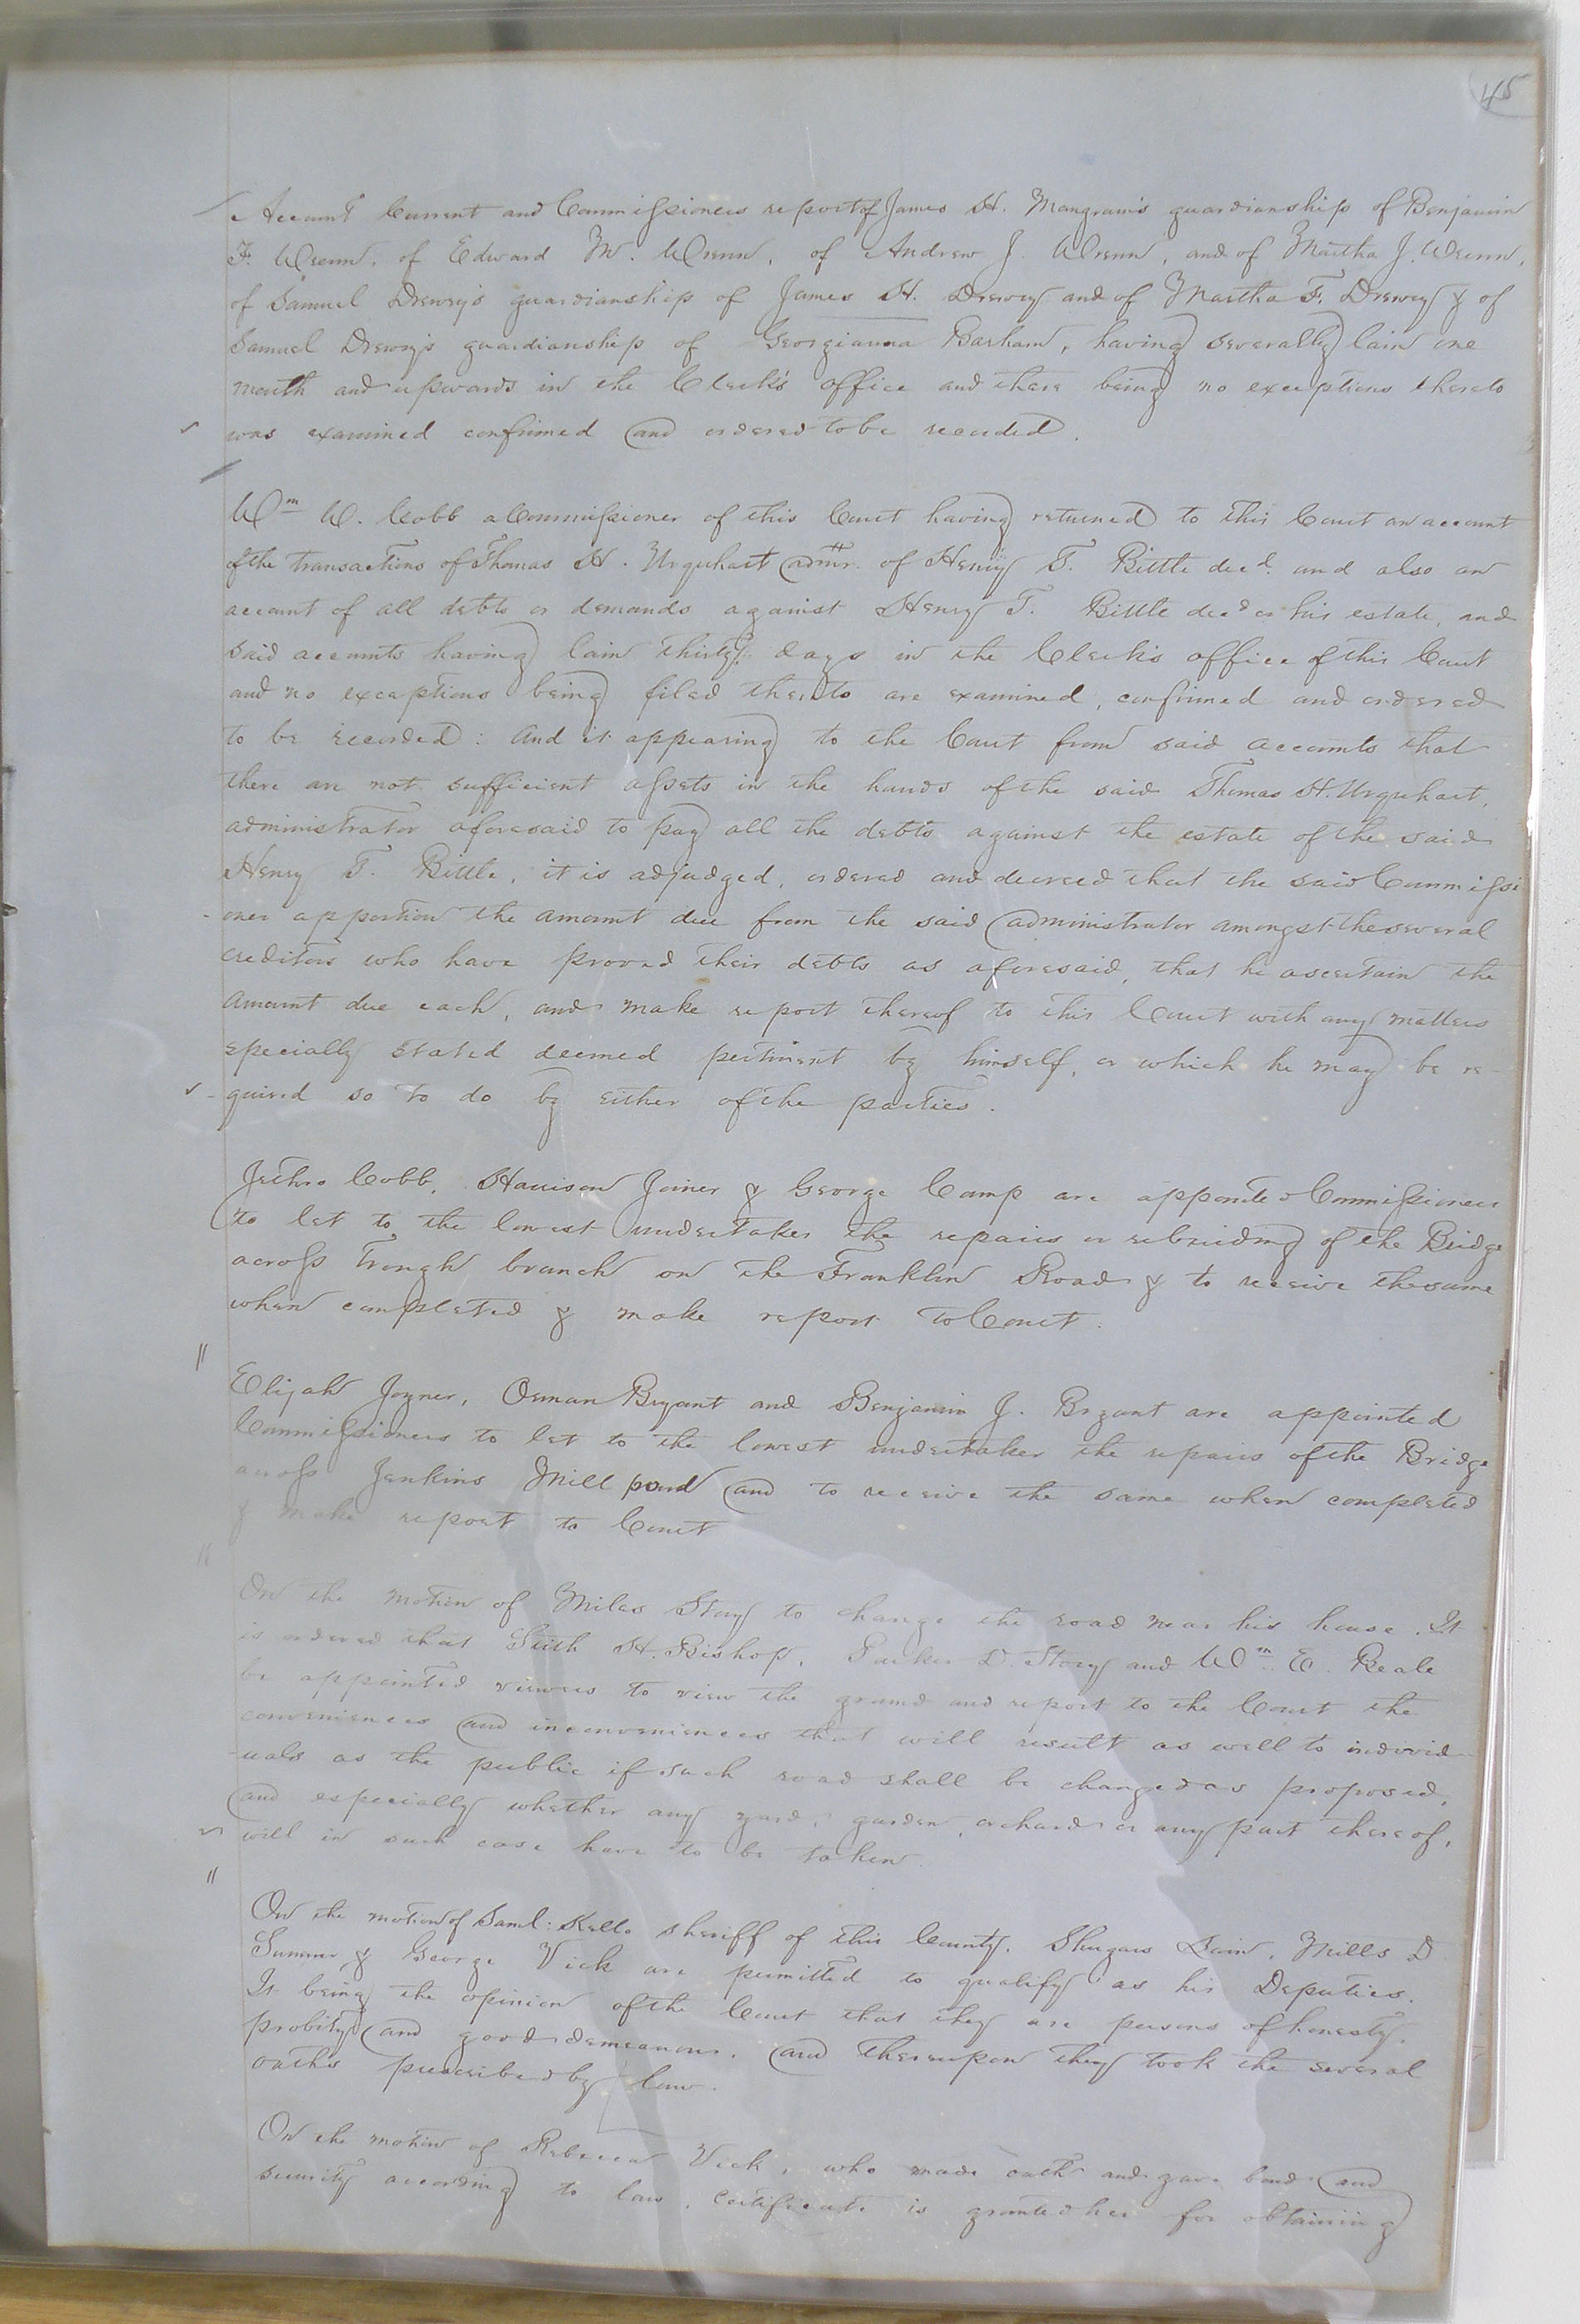 45
Account Current and Commissioners report of James H. Mangram's guardianship of Benjamin
F. Wrenn, of Edward M. Wrenn, of Andrew J. Wrenn, and of Martha J. Wrenn,
of Samuel Drewry's guardianship of James H. Drewry and of Martha F. Drewry & of
Samuel Drewry's guardianship of Georgianna Barham, having severally lain one
month and upwards in the Clerk's office and there being no exceptions thereto
was examined confirmed and ordered to be recorded.
Wm W. Cobb a Commissioner of this Court having returned to this Court an account
of the transactions of Thomas H. Urquhart admr. of Henry T. Bittle decd. and also an
account of all debts or demands against Henry T. Bittle decd or his estate, and
said accounts having lain thirty days in the Clerk's office of this Court
and no exceptions being filed thereto are examined, confirmed and ordered
to be recorded: And it appearing to the Court from said accounts that
there are not sufficient assets in the hands of the said Thomas H. Urquhart,
administrator aforesaid to pay all the debts against the estate of the said
Henry T. Bittle, it is adjudged, ordered and decreed that the said Commissi
-oner apportion the amount due from the said administrator amongst the several
creditors who have proved their debts as aforesaid, that he ascertain the
amount due each, and make report thereof to this Court with any matters
specially stated deemed pertinent by himself, or which he may be re-
-quired so to do by either of the parties.
Jethro Cobb, Harrison Joiner & George Camp are appointed Commissioners
to let to the lowest undertaker the repairs or rebuilding of the Bridge
across Trough branch on the Franklin Road & to receive the same
when completed & make report to Court.
Elijah Joyner, Orman Bryant and Benjamin J. Bryant are appointed
Commissioners to let to the lowest undertaker the repairs of the Bridge
across Jenkins Mill pond and to receive the same when completed
& make report to Court
On the motion of Miles Story to change the road near his house. It
is ordered that H. Bishop, Parker D. Story and Wm. E. Beale
be appointed viewers to view the ground and report to the Court the
conveniences and inconveniences that will result as well to individ
-uals as the public if such road shall be changed as proposed,
and especially whether any yard, garden, orchard or any part thereof,
will in such case have to be taken.
On the motion of Saml: Kello sheriff of this County. Shugars Bain, Mills D
Summer & George Vick are permitted to qualify as his Deputies.
It being the opinion of the Court that they are persons of honesty,
probity and good demeanour. and thereupon they took the several
oaths prescribed by law.
On the motion of Rebecca Vick, who made oath and gave bond and
security according to law, certificate is granted her for obtaining